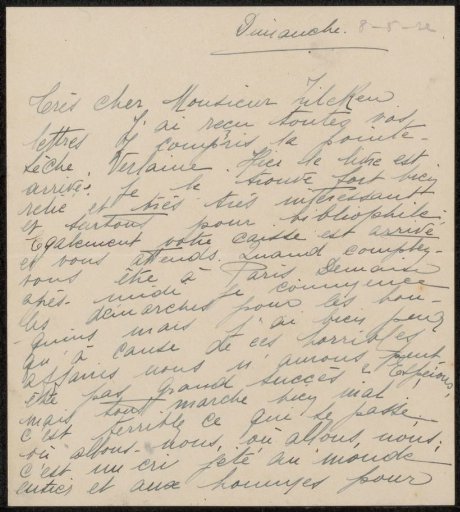 Dimanche. 8-5-22.
Très cher Monsieur Zilcken
lettres J'ai reçu toutes vos
y compris la pointe-
sèche, Verlaine. Hier le livre est
arrivé, je le trouve fort bien
relié et très très intéressant
et surtout pour bibliophile.
Egalement votre caisse est arrivé
et vous attends. Quand comptez-
vous être à Paris Demain
après-midi je commence
les démarches pour les bou-
quins mais j'ai bien peur
qu'à cause de ces horribles
affaires nous n'aurons peut
être pas grand succès. Espérons,
mais tout marche bien mal,
c'est terrible ce qui se passe.
où allons-nous, où allons, nous;
c'est un cri jeté au monde
entier et aux hommes pour